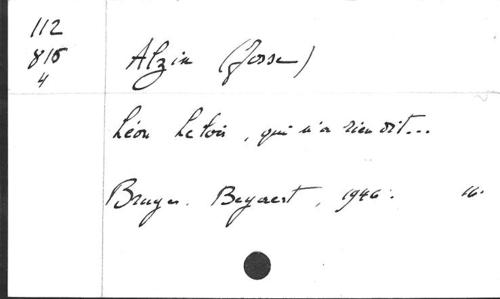 112
815
4
Alzin (Josse)
Léon Letoir, qui n'a rien dit...
Bruges. Beyaert, 1946. 16.